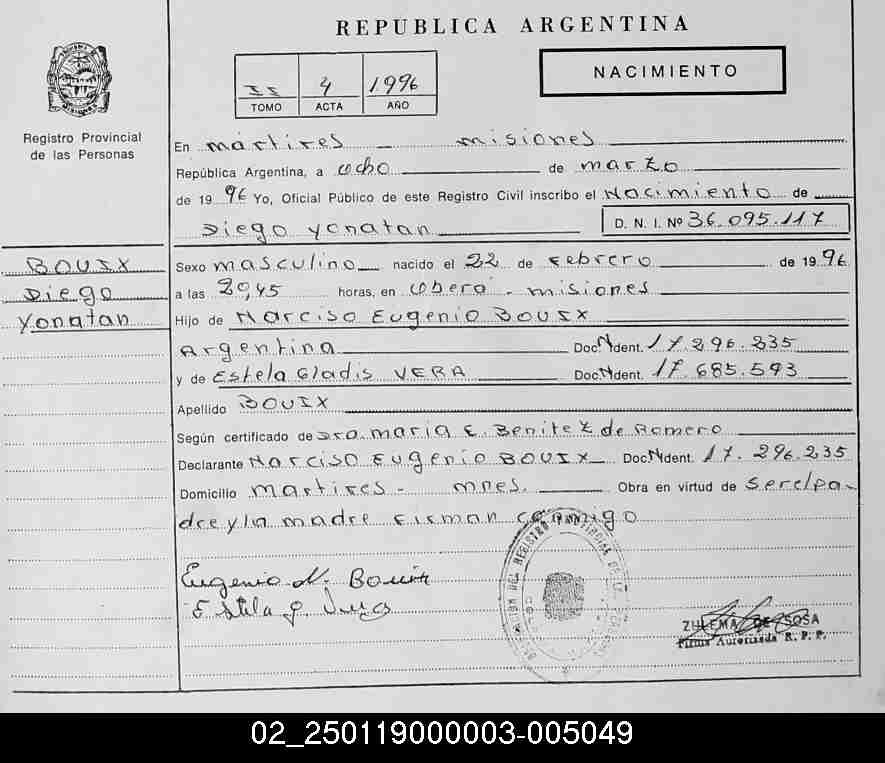 REPUBLICA ARGENTINA
II 4 1996
TOMO ACTA AÑO
NACIMIENTO
Registro Provincial
de las Personas
En martires misiones
República Argentina, a ocho de marzo
de 1996 Yo, Oficial Público de este Registro Civil inscribo el Nacimiento de
Diego Yonatan D. N. I. Nº 36.095.117
BOUIX
Diego
Yonatan
Sexo masculino nacido el 22 de Febrero de 1996
a las 20,45 horas, en Obera - misiones
Hijo de Narciso Eugenio BOUIX
Argentina Doc. Ident. 17.296.235
y de Estela Gladis VERA Doc. Ident. 17.685.593
Apellido BOUIX
Según certificado de Dra. maria E. Benitez de Romero
Declarante Narciso Eugenio BOUIX Doc. Ident. 17.296.235
Domicilio martires - mnes. Obra en virtud de ser el pa-
dre y la madre firman conmigo
Eugenio N. Bouix
ZULEMA DE SOSA
Firma Autorizada R. P. P.
02_250119000003-005049